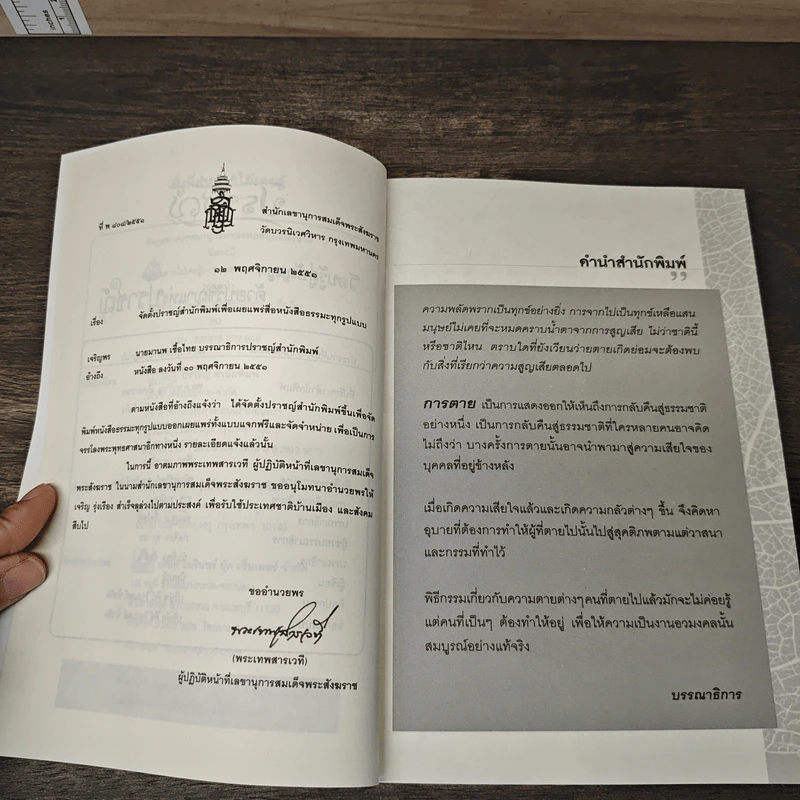 inches
ที่ พ ๔๐๔/๒๕๕๑
สำนักเลขานุการสมเด็จพระสังฆราช
วัดบวรนิเวศวิหาร กรุงเทพมหานคร
๑๒ พฤศจิกายน ๒๕๕๑
เรื่อง จัดตั้งปราชญ์สำนักพิมพ์เพื่อเผยแพร่สื่อหนังสือธรรมะทุกรูปแบบ
เจริญพร นายมานพ เชื้อไทย บรรณาธิการปราชญ์สำนักพิมพ์
อ้างถึง หนังสือ ลงวันที่ ๑๐ พฤศจิกายน ๒๕๕๑
ตามหนังสือที่อ้างถึงแจ้งว่า ได้จัดตั้งปราชญ์สำนักพิมพ์ขึ้นเพื่อจัด
พิมพ์หนังสือธรรมะทุกรูปแบบออกเผยแพร่ทั้งแบบแจกฟรีและจัดจำหน่าย เพื่อเป็นการ
จรรโลงพระพุทธศาสนาอีกทางหนึ่ง รายละเอียดแจ้งแล้วนั้น
ในการนี้ อาตมภาพพระเทพสารเวที ผู้ปฏิบัติหน้าที่เลขานุการสมเด็จ
พระสังฆราช ในนามสำนักเลขานุการสมเด็จพระสังฆราช ขออนุโมทนาอำนวยพรให้
เจริญ รุ่งเรือง สำเร็จลุล่วงไปตามประสงค์ เพื่อรับใช้ประเทศชาติบ้านเมือง และสังคม
สืบไป
ขออำนวยพร
พระเทพสารเวที
(พระเทพสารเวที)
ผู้ปฏิบัติหน้าที่เลขานุการสมเด็จพระสังฆราช
คำนำสำนักพิมพ์
ความพลัดพรากเป็นทุกข์อย่างยิ่ง การจากไปเป็นทุกข์เหลือแสน
มนุษย์ไม่เคยที่จะหมดคราบน้ำตาจากการสูญเสีย ไม่ว่าชาตินี้
หรือชาติไหน ตราบใดที่ยังเวียนว่ายตายเกิดย่อมจะต้องพบ
กับสิ่งที่เรียกว่าความสูญเสียตลอดไป
การตาย เป็นการแสดงออกให้เห็นถึงการกลับคืนสู่ธรรมชาติ
อย่างหนึ่ง เป็นการกลับคืนสู่ธรรมชาติที่ใครหลายคนอาจคิด
ไม่ถึงว่า บางครั้งการตายนั้นอาจนำพามาสู่ความเสียใจของ
บุคคลที่อยู่ข้างหลัง
เมื่อเกิดความเสียใจแล้วและเกิดความกลัวต่างๆ ขึ้น จึงคิดหา
อุบายที่ต้องการทำให้ผู้ที่ตายไปนั้นไปสู่สุคติภพตามแต่วาสนา
และกรรมที่ทำไว้
พิธีกรรมเกี่ยวกับความตายต่างๆคนที่ตายไปแล้วมักจะไม่ค่อยรู้
แต่คนที่เป็นๆ ต้องทำให้อยู่ เพื่อให้ความเป็นงานอวมงคลนั้น
สมบูรณ์อย่างแท้จริง
บรรณาธิการ